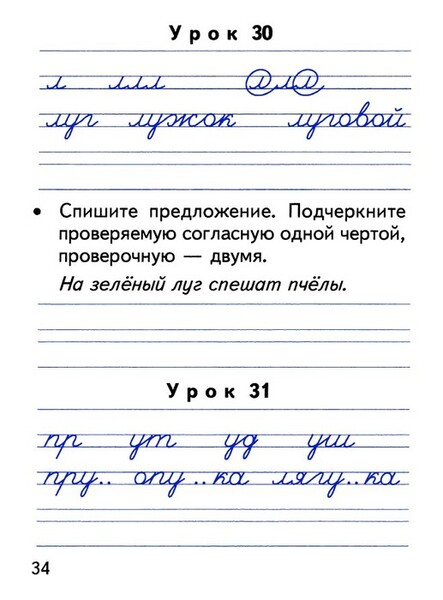 Урок 30
л ллл ллл
луг лужок луговой
• Спишите предложение. Подчеркните
проверяемую согласную одной чертой,
проверочную — двумя.
На зелёный луг спешат пчёлы.
Урок 31
пр ут уд уш
пру.. опу..ка лягу..ка
34